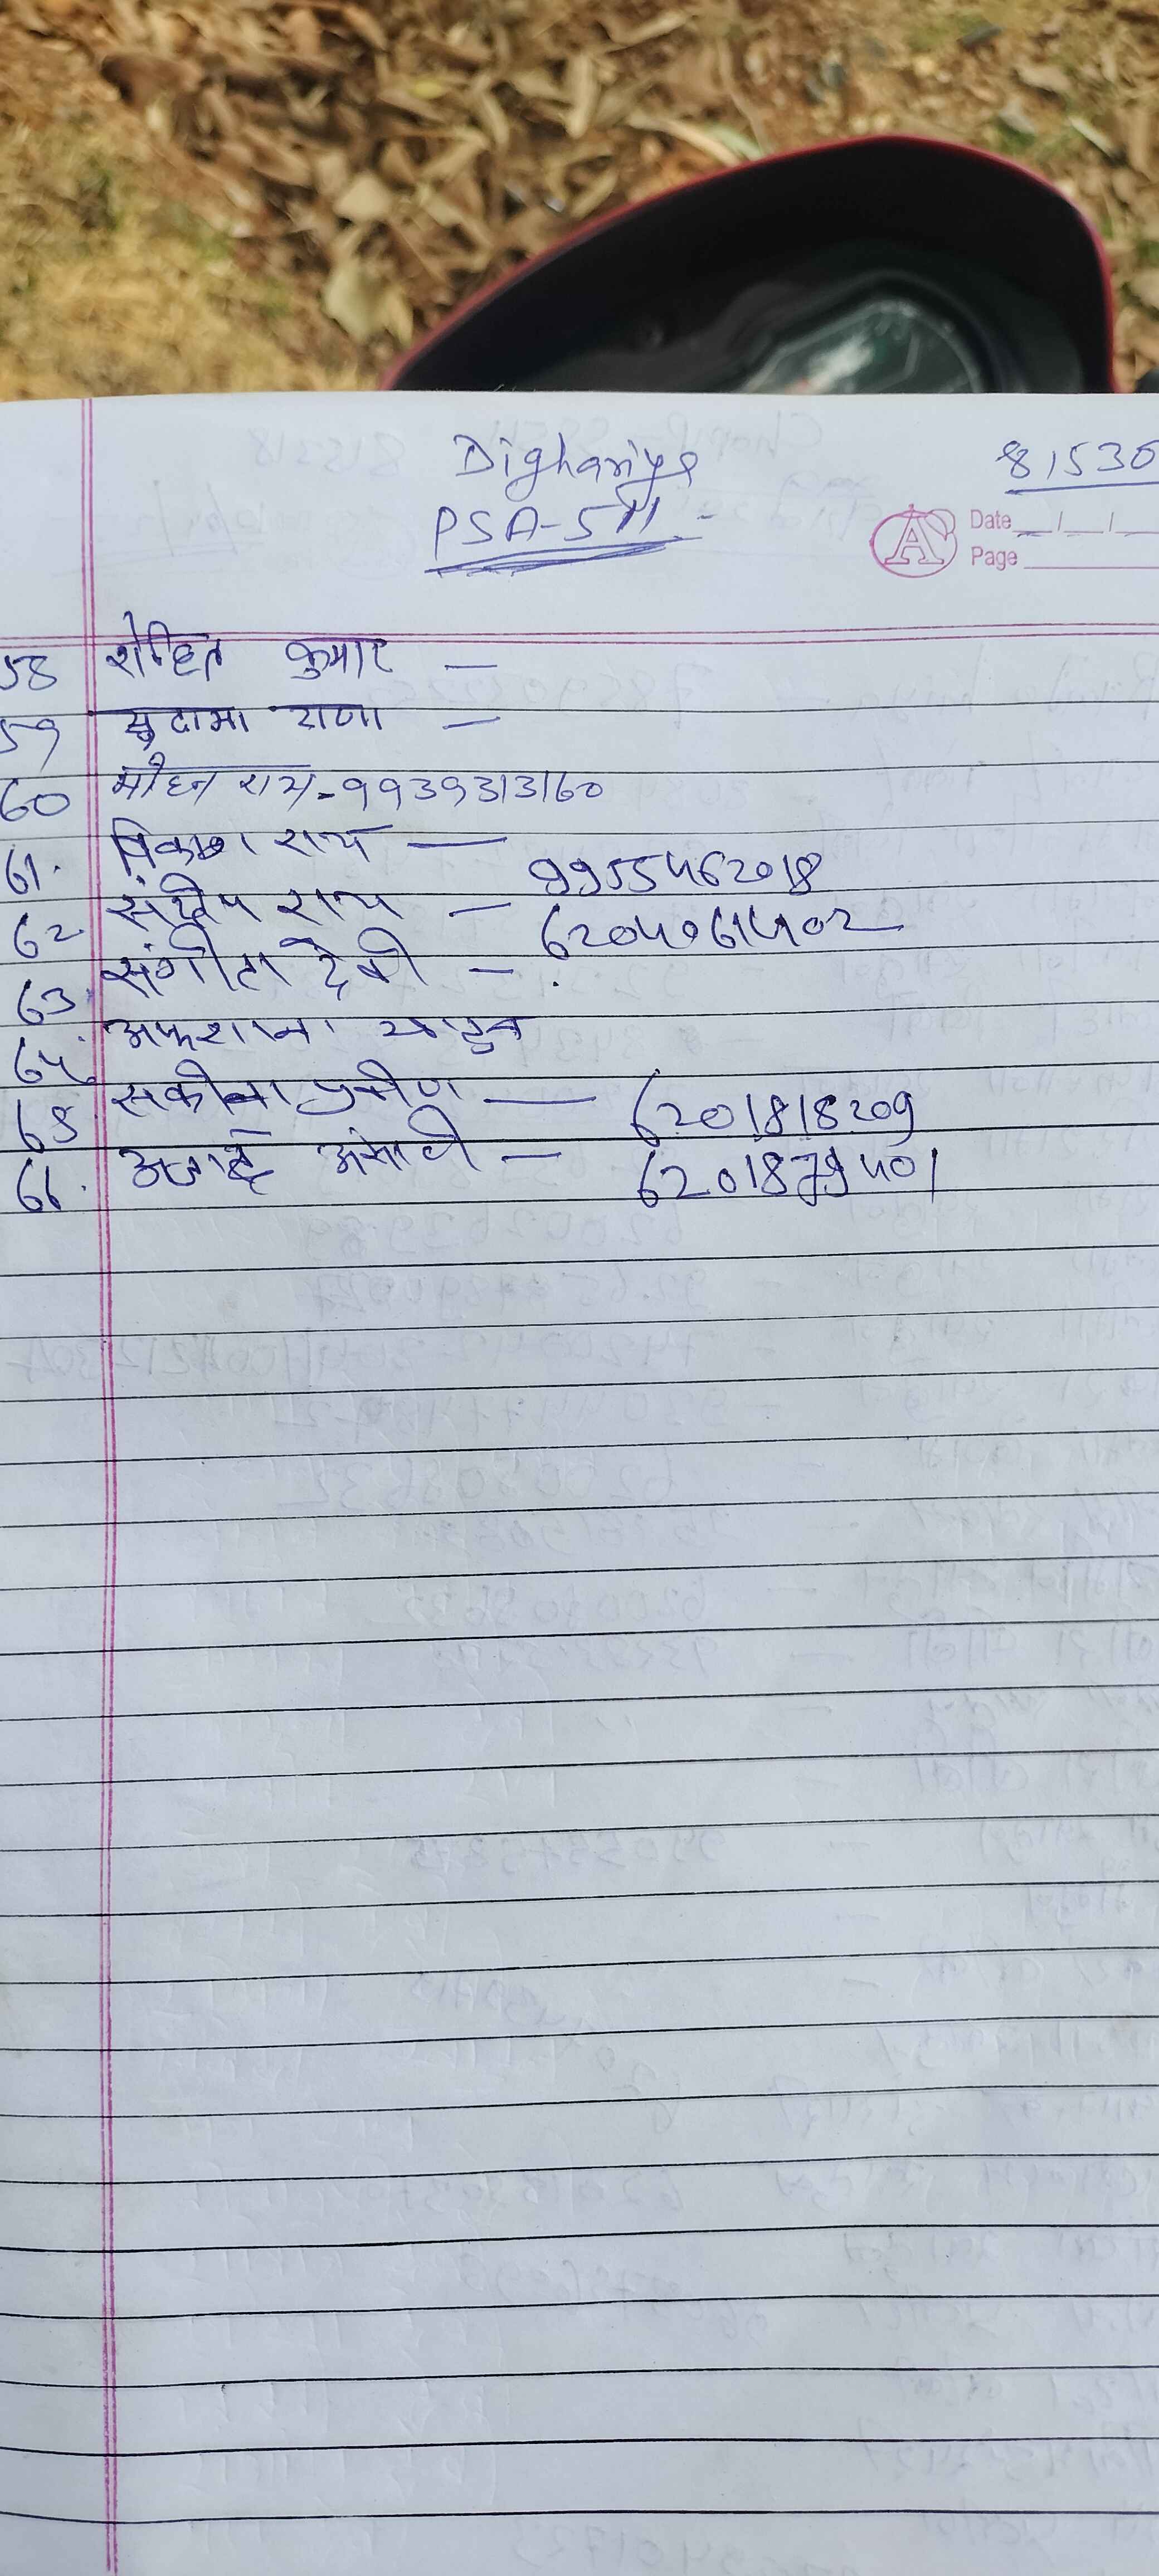 Dighariya 81530
PSA-511
Date
Page
58 रोहित कुमार —
59 सुदामा राणा —
60 मोहन राय - 9939313160
61. विकाश राय — 9955462018
62. संदीप राय — 6204061402
63. संगीता देवी —
64. अफसाना खातुन
65. सकीना प्रवीण — 6201818209
66. अंसारी — 6201879401